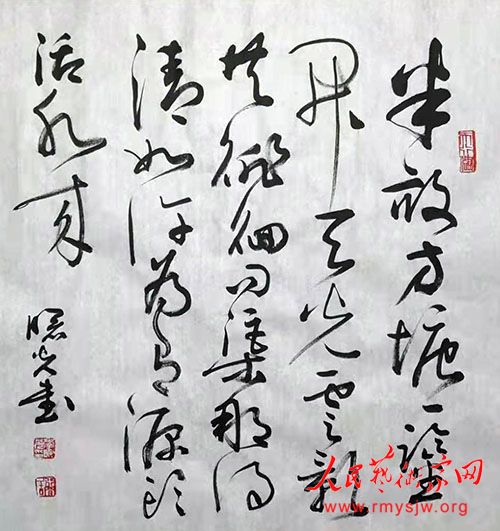 半畝方塘一鑑
开天光雲影
共徘徊问渠那得
清如许为有源头
活水来
光書
人民藝術家网
www.rmysjw.org